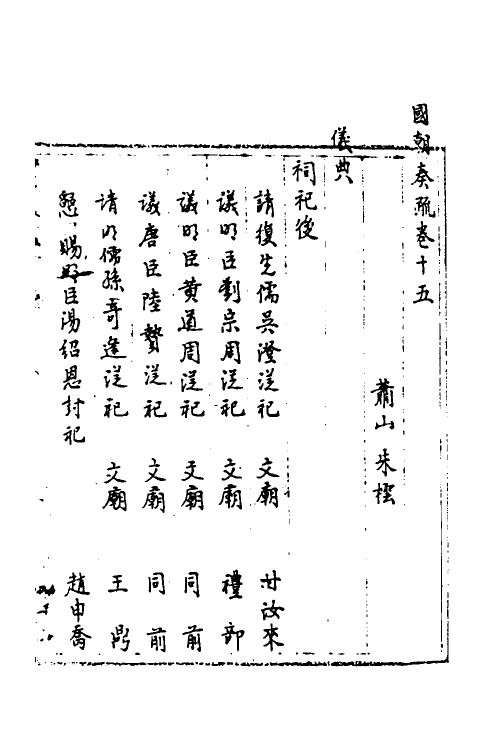 國朝奏疏卷十五
蕭山朱橒
儀典
祠祀後
請復先儒吳澄從祀 文廟 甘汝來
議明臣劉宗周從祀 文廟 禮部
議明臣黃道周從祀 文廟 同前
議唐臣陸贄從祀 文廟 同前
請明儒孫奇逢從祀 文廟 王鼎
懇賜臣湯紹恩封祀 趙申喬